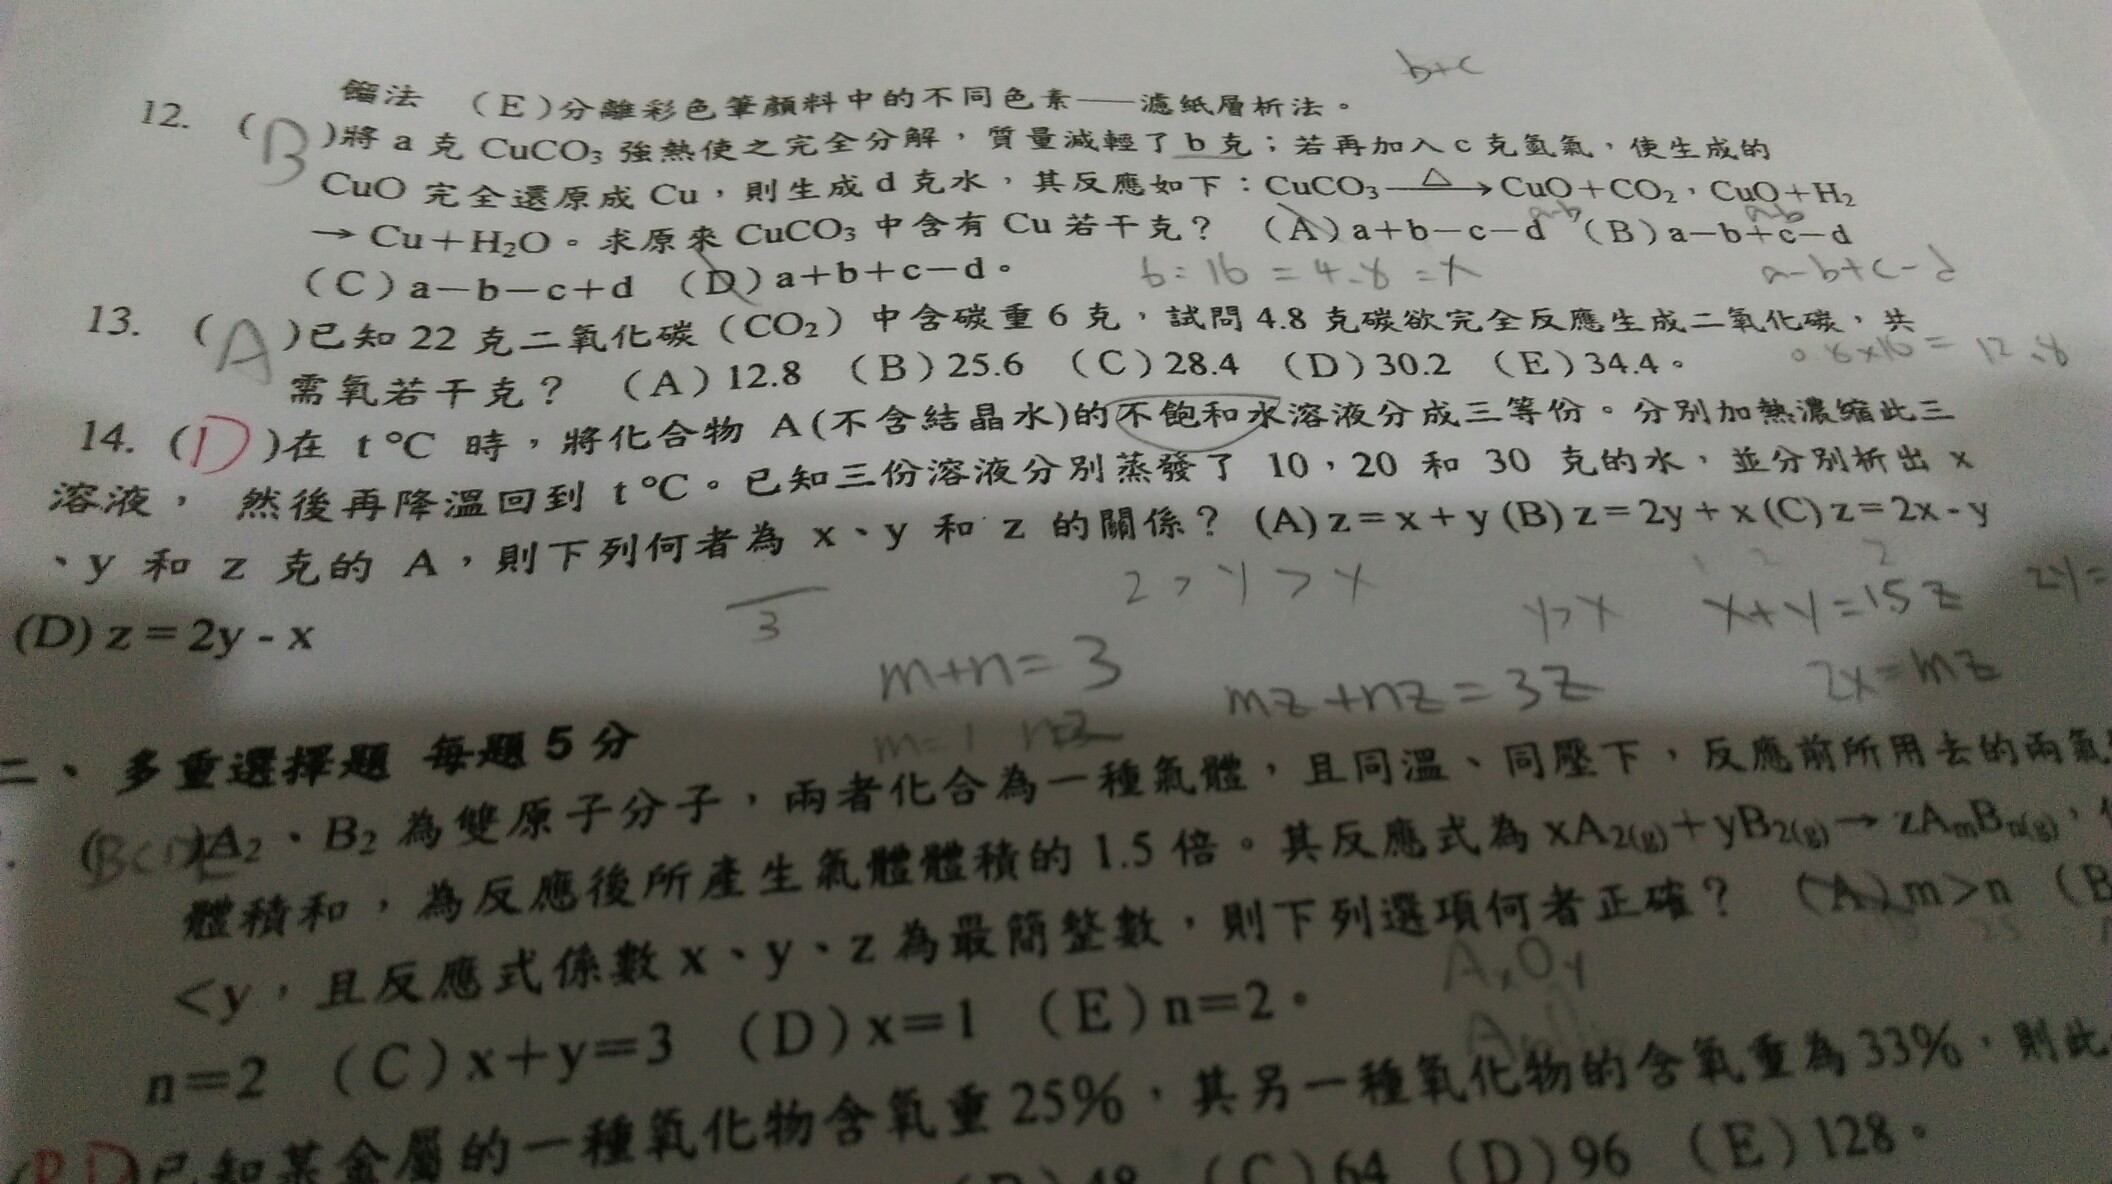 b+c
餾法 (E)分離彩色筆顏料中的不同色素——濾紙層析法。
12. (B)將 a 克 CuCO₃ 強熱使之完全分解，質量減輕了 b 克；若再加入 c 克氫氣，使生成的
CuO 完全還原成 Cu，則生成 d 克水，其反應如下：CuCO₃ —△→ CuO+CO₂，CuO+H₂
a-b a-b
→ Cu+H₂O。求原來 CuCO₃ 中含有 Cu 若干克？ (A)a+b−c−d (B)a−b+c−d
(C)a−b−c+d (D)a+b+c−d。 6:16=4.8=x a-b+c-d
13. (A)已知 22 克二氧化碳（CO₂）中含碳重 6 克，試問 4.8 克碳欲完全反應生成二氧化碳，共
需氧若干克？ (A)12.8 (B)25.6 (C)28.4 (D)30.2 (E)34.4。 0.8x16=12.8
14. (D)在 t℃ 時，將化合物 A(不含結晶水)的不飽和水溶液分成三等份。分別加熱濃縮此三
溶液， 然後再降溫回到 t℃。已知三份溶液分別蒸發了 10，20 和 30 克的水，並分別析出 x
、y 和 z 克的 A，則下列何者為 x、y 和 z 的關係？ (A) z=x+y (B) z=2y+x (C) z=2x-y
3 z>y>x y>x x+y=1.5z 2y=
(D) z=2y-x
m+n=3 mz+nz=3z 2x=mz
m=1 n=2
二、多重選擇題 每題 5 分
(BCDE)A₂、B₂ 為雙原子分子，兩者化合為一種氣體，且同溫、同壓下，反應前所用去的兩氣
體積和，為反應後所產生氣體體積的 1.5 倍。其反應式為 xA₂(g)+yB₂(g)→zAmBn(g)，
<y，且反應式係數 x、y、z 為最簡整數，則下列選項何者正確？ (A)m>n (B
AxOy
n=2 (C)x+y=3 (D)x=1 (E)n=2。
(BD)已知某金屬的一種氧化物含氧重 25%，其另一種氧化物的含氧重為 33%，則此
48 (C)64 (D)96 (E)128。